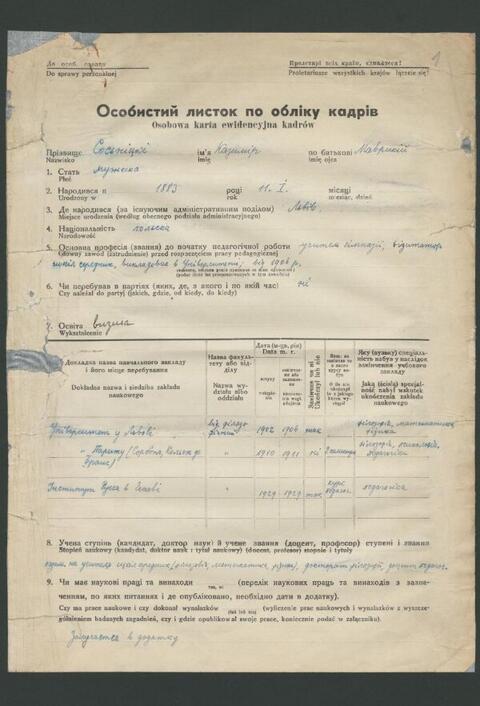 До особ. справи
Do sprawy personalnej
Пролетарі всіх країн, єднайтеся!
Proletariusze wszystkich krajów łączcie się!
1
Особистий листок по обліку кадрів
Osobowa karta ewidencyjna kadrów
Прізвище Сосніцкі ім'я Казимір по батькові Маврикій
Nazwisko imię imię ojca
1. Стать мужеська
Płeć
2. Народився в 1883 році 11. I. місяці
Urodzony w rok miesiąc, dzień
3. Де народився (за існуючим адміністративним поділом) Львів
Miejsce urodzenia (według obecnego podziału administracyjnego)
4. Національність польска
Narodowość
5. Основна професія (звання) до початку педагогічної роботи учитель гімназії, візитатор
Główny zawód (zatrudzienie) przed rozpoczęciem pracy pedagogicznej
шкіл середних, викладовця в Університеті, від 1906 р.
6. Чи перебував в партіях (яких, де, з якого і по якій час) ні
Czy należał do partyj (jakich, gdzie, od kiedy, do kiedy)
7. Освіта висша
Wykształcenie
Докладна назва навчального закладу і його місце перебування
Dokładna nazwa i siedziba zakładu naukowego
Назва факультету або відділу
Nazwa wydziału wzgl. oddziału
Дата (м-ць, рік)
Data m. r.
вступу
Закінчив чи ні
Ukończył lub nie
Яку (вузьку) спеціальність набув у наслідок закінчення учбового закладу
Jaką (ścisłą) specjalność nabył wskutek ukończenia zakładu naukowego
Університет у Львові від. філозофічний 1902 1906 так філозофія, математика, фізика
" Парижу (Сорбона, Колеж де Франс) " 1910 1911 ні 2 семестри філозофія, психольогія, педагогіка
Інститут Руссо в Женеві " 1929 1929 так курс педагог. педагогіка
8. Учена ступінь (кандидат, доктор наук) й учене звання (доцент, професор) ступені і звання
Stopień naukowy (kandydat, doktor nauk i tytuł naukowy) (docent, profesor) stopnie i tytuły
9. Чи має наукові праці та винаходи так, ні (перелік наукових праць та винаходів з зазначенням, по яких питаннях і де опубліковано, необхідно дати в додатку).
Czy ma prace naukowe i czy dokonał wynalazków (tak lub nie) (wyliczenie prac naukowych i wynalazków z wyszczególnieniem badanych zagadnień, czy i gdzie opublikował swoje prace, konieczne podać w załączniku).
Залучається в додатку